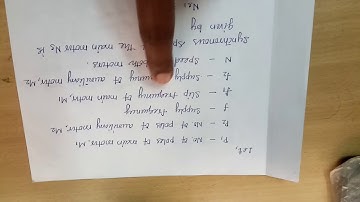 Let,
P₁ – No. of poles of main motor, M₁
P₂ – No. of poles of auxiliary motor, M₂
f – Supply frequency
f₁ – Slip frequency of main motor, M₁
f₂ – Supply frequency of auxiliary motor, M₂
N – Speed both motors.
Synchronous Speed the main motor Ns is
given by